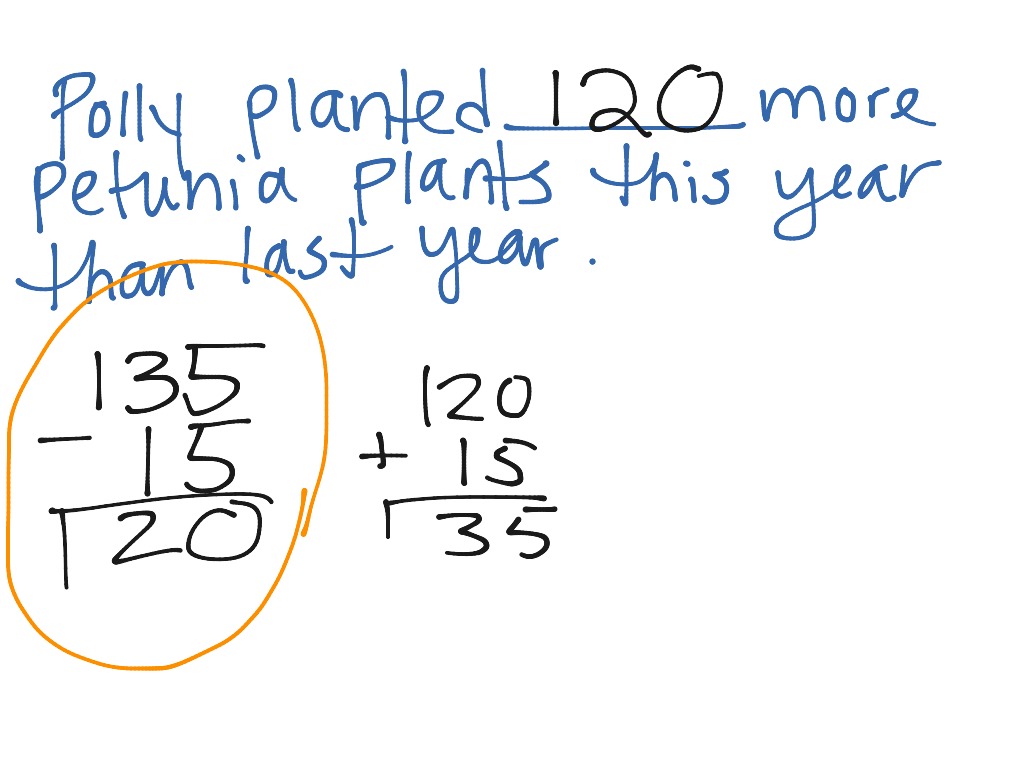 Polly planted 120 more
petunia plants this year
than last year.
135
- 15
120
120
+ 15
135